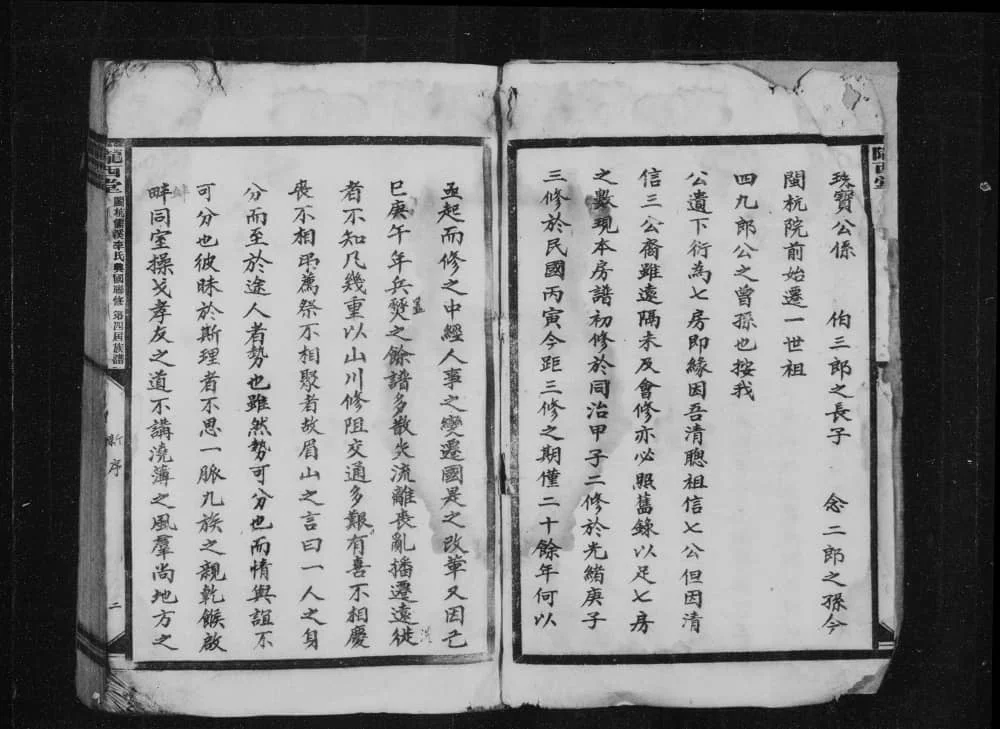 隴西堂
珠寶公係 伯三郎之長子 念二郎之孫今
閩杭院前始遷一世祖
四九郎公之曾孫也按我
公遺下衍為七房即緣因吾清聰祖信七公但因清
信三公裔雖遠隔未及會修亦必照舊錄以足七房
之數現本房譜初修於同治甲子二修於光緒庚子
三修於民國丙寅今距三修之期僅二十餘年何以
亟起而修之中經人事之變遷國是之改革又因己
巳庚午年兵燹之餘譜多散失流離喪亂播遷遠徙
者不知凡幾重以山川修阻交通多艱有喜不相慶
喪不相弔薦祭不相聚者故眉山之言曰一人之身
分而至於途人者勢也雖然勢可分也而情與誼不
可分也彼昧於斯理者不思一脈九族之親乾餱啟
畔同室操戈孝友之道不講澆薄之風羣尚地方之
隴西堂 杭 溪李氏興國聯修 第四屆族譜
新序
二